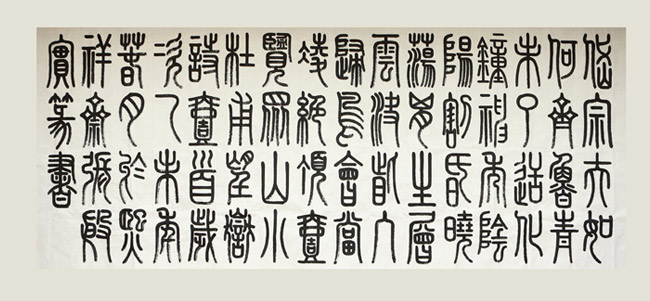 岱宗夫如
何齊魯青
未了造化
鐘神秀陰
陽割昏曉
蕩胸生層
雲決眥入
歸鳥會當
凌絕頂壹
覽眾山小
杜甫望嶽
詩壹首歲
次乙未年
春月於熙
祥齋張殷
實篆書